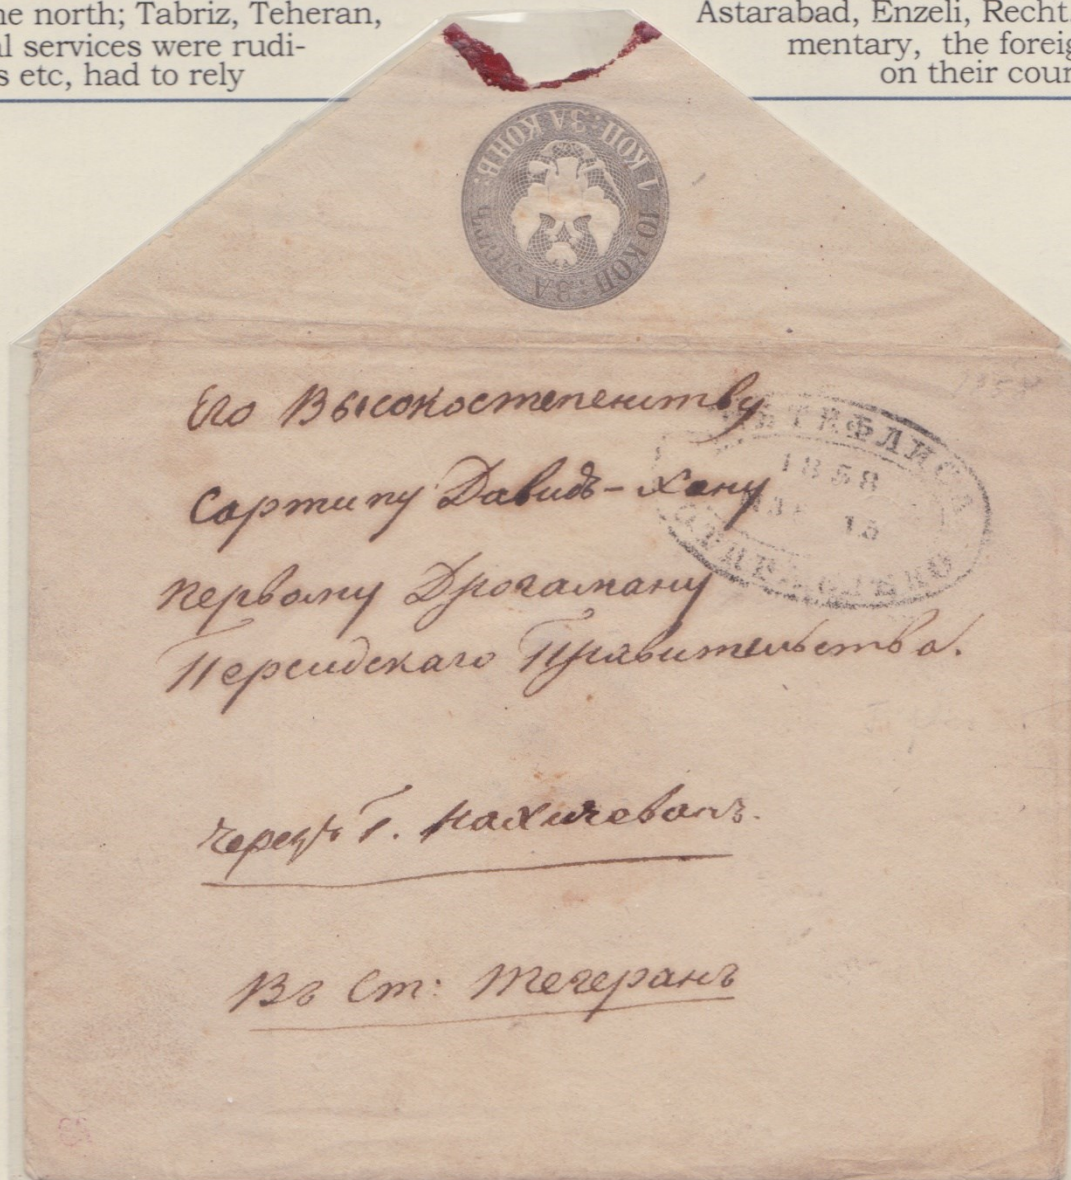 ne north; Tabriz, Teheran,
l services were rudi-
s etc, had to rely
Astarabad, Enzeli, Recht.
mentary, the foreig
on their cour
1 КОП: ЗА КОНВ:
10 КОП: ЗА ЛОТЪ
Его Высокостепенству
Сартипу Давидъ-Хану
Первому Драгаману
Персидскаго Правительства.
Черезъ Г. Нахичевань.
Въ Ст: Тегеранъ
ТИФЛИСА
1858
15